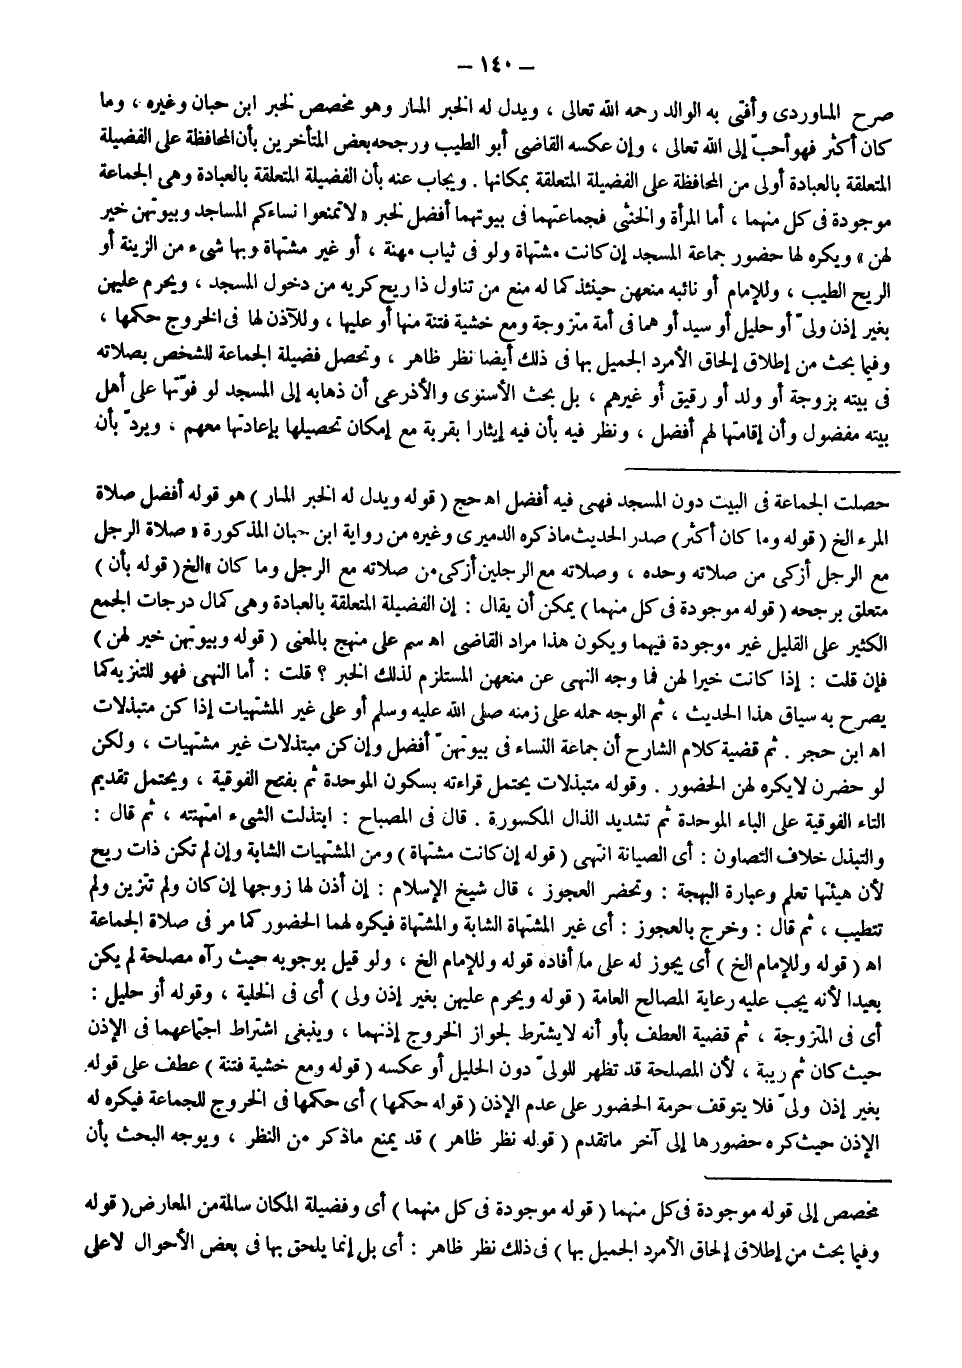 – ١٤٠ –
صرح الماوردى وأفتى به الوالد رحمه الله تعالى ، ويدل له الخبر المار وهو مخصص لخبر ابن حبان وغيره ، وما
كان أكثر فهو أحبّ إلى الله تعالى ، وإن عكسه القاضى أبو الطيب ورجحه بعض المتأخرين بأن المحافظة على الفضيلة
المتعلقة بالعبادة أولى من المحافظة على الفضيلة المتعلقة بمكانها . ويجاب عنه بأن الفضيلة المتعلقة بالعبادة وهى الجماعة
موجودة فى كل منهما ، أما المرأة والخنثى فجماعتهما فى بيوتهما أفضل لخبر « لاتمنعوا نساءكم المساجد وبيوتهن خير
لهن » ويكره لها حضور جماعة المسجد إن كانت مشتهاة ولو فى ثياب مهنة ، أو غير مشتهاة وبها شىء من الزينة أو
الريح الطيب ، وللإمام أو نائبه منعهن حينئذ كما له منع من تناول ذا ريح كريه من دخول المسجد ، ويحرم عليهن
بغير إذن ولىّ أو حليل أو سيد أو هما فى أمة متزوجة ومع خشية فتنة منها أو عليها ، وللآذن لها فى الخروج حكمها ،
وفيما بحث من إطلاق إلحاق الأمرد الجميل بها فى ذلك أيضا نظر ظاهر ، وتحصل فضيلة الجماعة للشخص بصلاته
فى بيته بزوجة أو ولد أو رقيق أو غيرهم ، بل بحث الأسنوى والأذرعى أن ذهابه إلى المسجد لو فوّتها على أهل
بيته مفضول وأن إقامتها لهم أفضل ، ونظر فيه بأن فيه إيثارا بقربة مع إمكان تحصيلها بإعادتها معهم ، ويردّ بأن
حصلت الجماعة فى البيت دون المسجد فهى فيه أفضل اه حج ( قوله ويدل له الخبر المار ) هو قوله أفضل صلاة
المرء الخ ( قوله وما كان أكثر ) صدر الحديث ماذكره الدميرى وغيره من رواية ابن حبان المذكورة « صلاة الرجل
مع الرجل أزكى من صلاته وحده ، وصلاته مع الرجلين أزكى من صلاته مع الرجل وما كان » الخ ( قوله بأن )
متعلق برجحه ( قوله موجودة فى كل منهما ) يمكن أن يقال : إن الفضيلة المتعلقة بالعبادة وهى كمال درجات الجمع
الكثير على القليل غير موجودة فيهما ويكون هذا مراد القاضى اه سم على منهج بالمعنى ( قوله وبيوتهن خير لهن )
فإن قلت : إذا كانت خيرا لهن فما وجه النهى عن منعهن المستلزم لذلك الخبر ؟ قلت : أما النهى فهو للتنزيه كما
يصرح به سياق هذا الحديث ، ثم الوجه حمله على زمنه صلى الله عليه وسلم أو على غير المشتهيات إذا كن متبذلات
اه ابن حجر . ثم قضية كلام الشارح أن جماعة النساء فى بيوتهنّ أفضل وإن كن مبتذلات غير مشتهيات ، ولكن
لو حضرن لايكره لهن الحضور . وقوله متبذلات يحتمل قراءته بسكون الموحدة ثم بفتح الفوقية ، ويحتمل تقديم
التاء الفوقية على الباء الموحدة ثم تشديد الذال المكسورة . قال فى المصباح : ابتذلت الشىء امتهنته ، ثم قال :
والتبذل خلاف التصاون : أى الصيانة انتهى ( قوله إن كانت مشتهاة ) ومن المشتهيات الشابة وإن لم تكن ذات ريح
لأن هيئتها تعلم وعبارة البهجة : وتحضر العجوز ، قال شيخ الإسلام : إن أذن لها زوجها إن كان ولم تتزين ولم
تتطيب ، ثم قال : وخرج بالعجوز : أى غير المشتهاة الشابة والمشتهاة فيكره لهما الحضور كما مر فى صلاة الجماعة
اه ( قوله وللإمام الخ ) أى يجوز له على ما أفاده قوله وللإمام الخ ، ولو قيل بوجوبه حيث رآه مصلحة لم يكن
بعيدا لأنه يجب عليه رعاية المصالح العامة ( قوله ويحرم عليهن بغير إذن ولى ) أى فى الخلية ، وقوله أو حليل :
أى فى المتزوجة ، ثم قضية العطف بأو أنه لايشترط لجواز الخروج إذنهما ، وينبغى اشتراط اجتماعهما فى الإذن
حيث كان ثم ريبة ، لأن المصلحة قد تظهر للولىّ دون الحليل أو عكسه ( قوله ومع خشية فتنة ) عطف على قوله
بغير إذن ولىّ فلا يتوقف حرمة الحضور على عدم الإذن ( قوله حكمها ) أى حكمها فى الخروج للجماعة فيكره له
الإذن حيث كره حضورها إلى آخر ماتقدم ( قوله نظر ظاهر ) قد يمنع ماذكر من النظر ، ويوجه البحث بأن
مخصص إلى قوله موجودة فى كل منهما ( قوله موجودة فى كل منهما ) أى وفضيلة المكان سالمة من المعارض ( قوله
وفيما بحث من إطلاق إلحاق الأمرد الجميل بها ) فى ذلك نظر ظاهر : أى بل إنما يلحق بها فى بعض الأحوال لاعلى